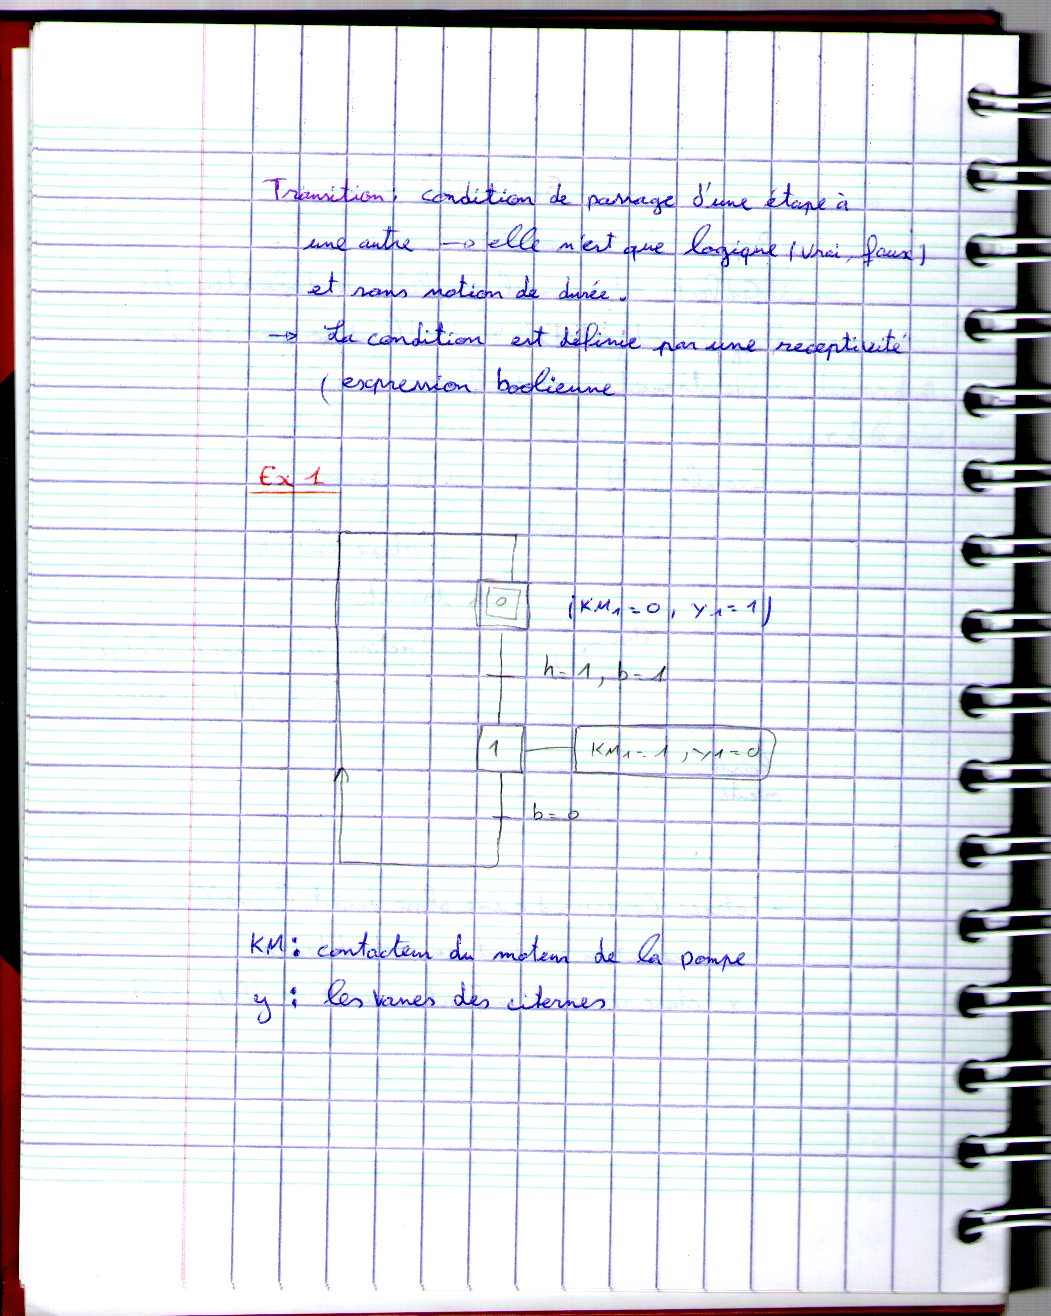 Transition : condition de passage d'une étape à
une autre → elle n'est que logique (vrai, faux)
et sans notion de durée.
→ La condition est définie par une receptivité
( expression boolienne
Ex 1
0 (KM1 = 0, Y1 = 1)
h = 1, b = 1
1 KM1 = 1, Y1 = 0
b = 0
KM : contacteur du moteur de la pompe
y : les vanes des citernes